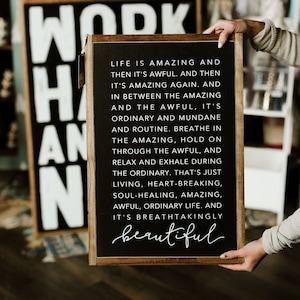 WORK
HA
AN
N
LIFE IS AMAZING AND
THEN IT'S AWFUL. AND THEN
IT'S AMAZING AGAIN. AND
IN BETWEEN THE AMAZING
AND THE AWFUL, IT'S
ORDINARY AND MUNDANE
AND ROUTINE. BREATHE IN
THE AMAZING, HOLD ON
THROUGH THE AWFUL, AND
RELAX AND EXHALE DURING
THE ORDINARY. THAT'S JUST
LIVING, HEART-BREAKING,
SOUL-HEALING, AMAZING,
AWFUL, ORDINARY LIFE. AND
IT'S BREATHTAKINGLY
beautiful